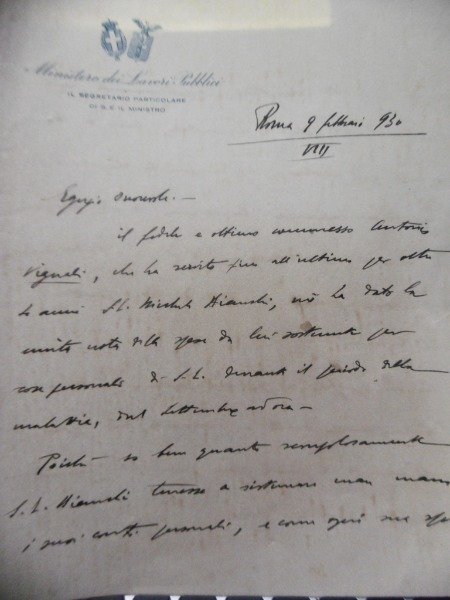 Ministero dei Lavori Pubblici
IL SEGRETARIO PARTICOLARE
DI S. E. IL MINISTRO
Roma 9 febbraio 930
VIII
Egregio Onorevole. —
il fedele e ottimo commesso Antonio
Vignali, che ha servito fino all'ultimo per oltre
4 anni S.E. Michele Bianchi, mi ha dato la
unita nota delle spese da lui sostenute per
cose personali di S.E. durante il periodo della
malattia, dal Settembre ad ora —
Poichè so bene quanto scrupolosamente
S.E. Bianchi tenesse a sistemare man mano
i suoi conti personali, e come ogni sua